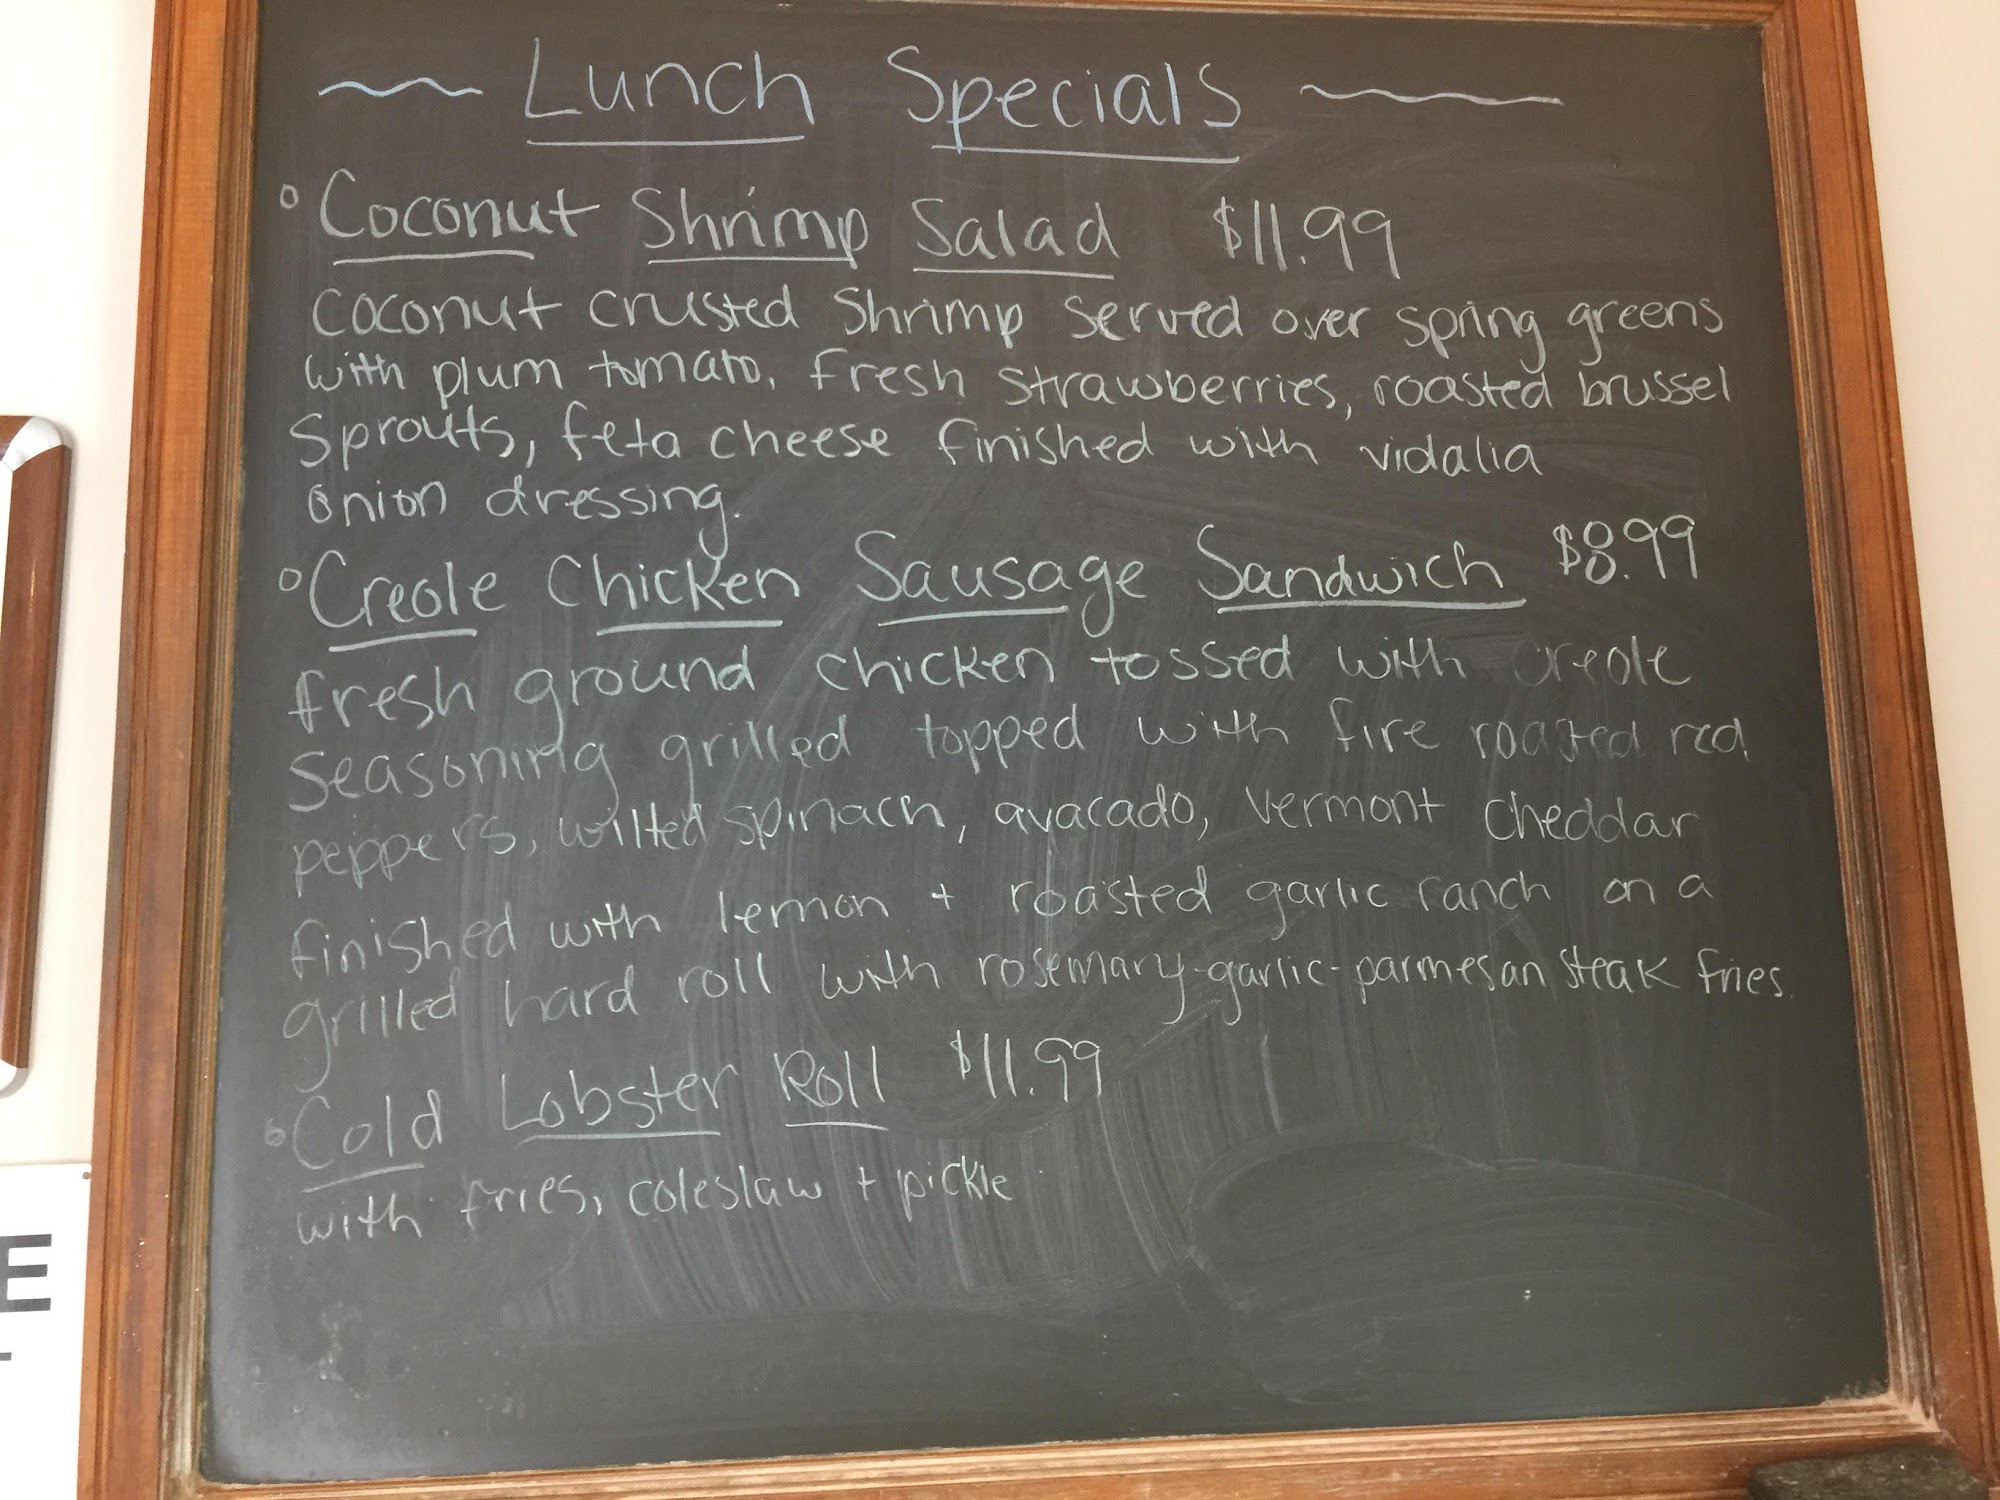 ~ Lunch Specials ~
° Coconut Shrimp Salad $11.99
Coconut crusted Shrimp served over spring greens
with plum tomato, fresh strawberries, roasted brussel
Sprouts, feta cheese finished with vidalia
onion dressing.
° Creole Chicken Sausage Sandwich $8.99
fresh ground chicken tossed with creole
seasoning grilled topped with fire roasted red
peppers, wilted spinach, avacado, Vermont cheddar
finished with lemon + roasted garlic ranch on a
grilled hard roll with rosemary-garlic-parmesan steak fries.
° Cold Lobster Roll $11.99
with fries, coleslaw + pickle
E